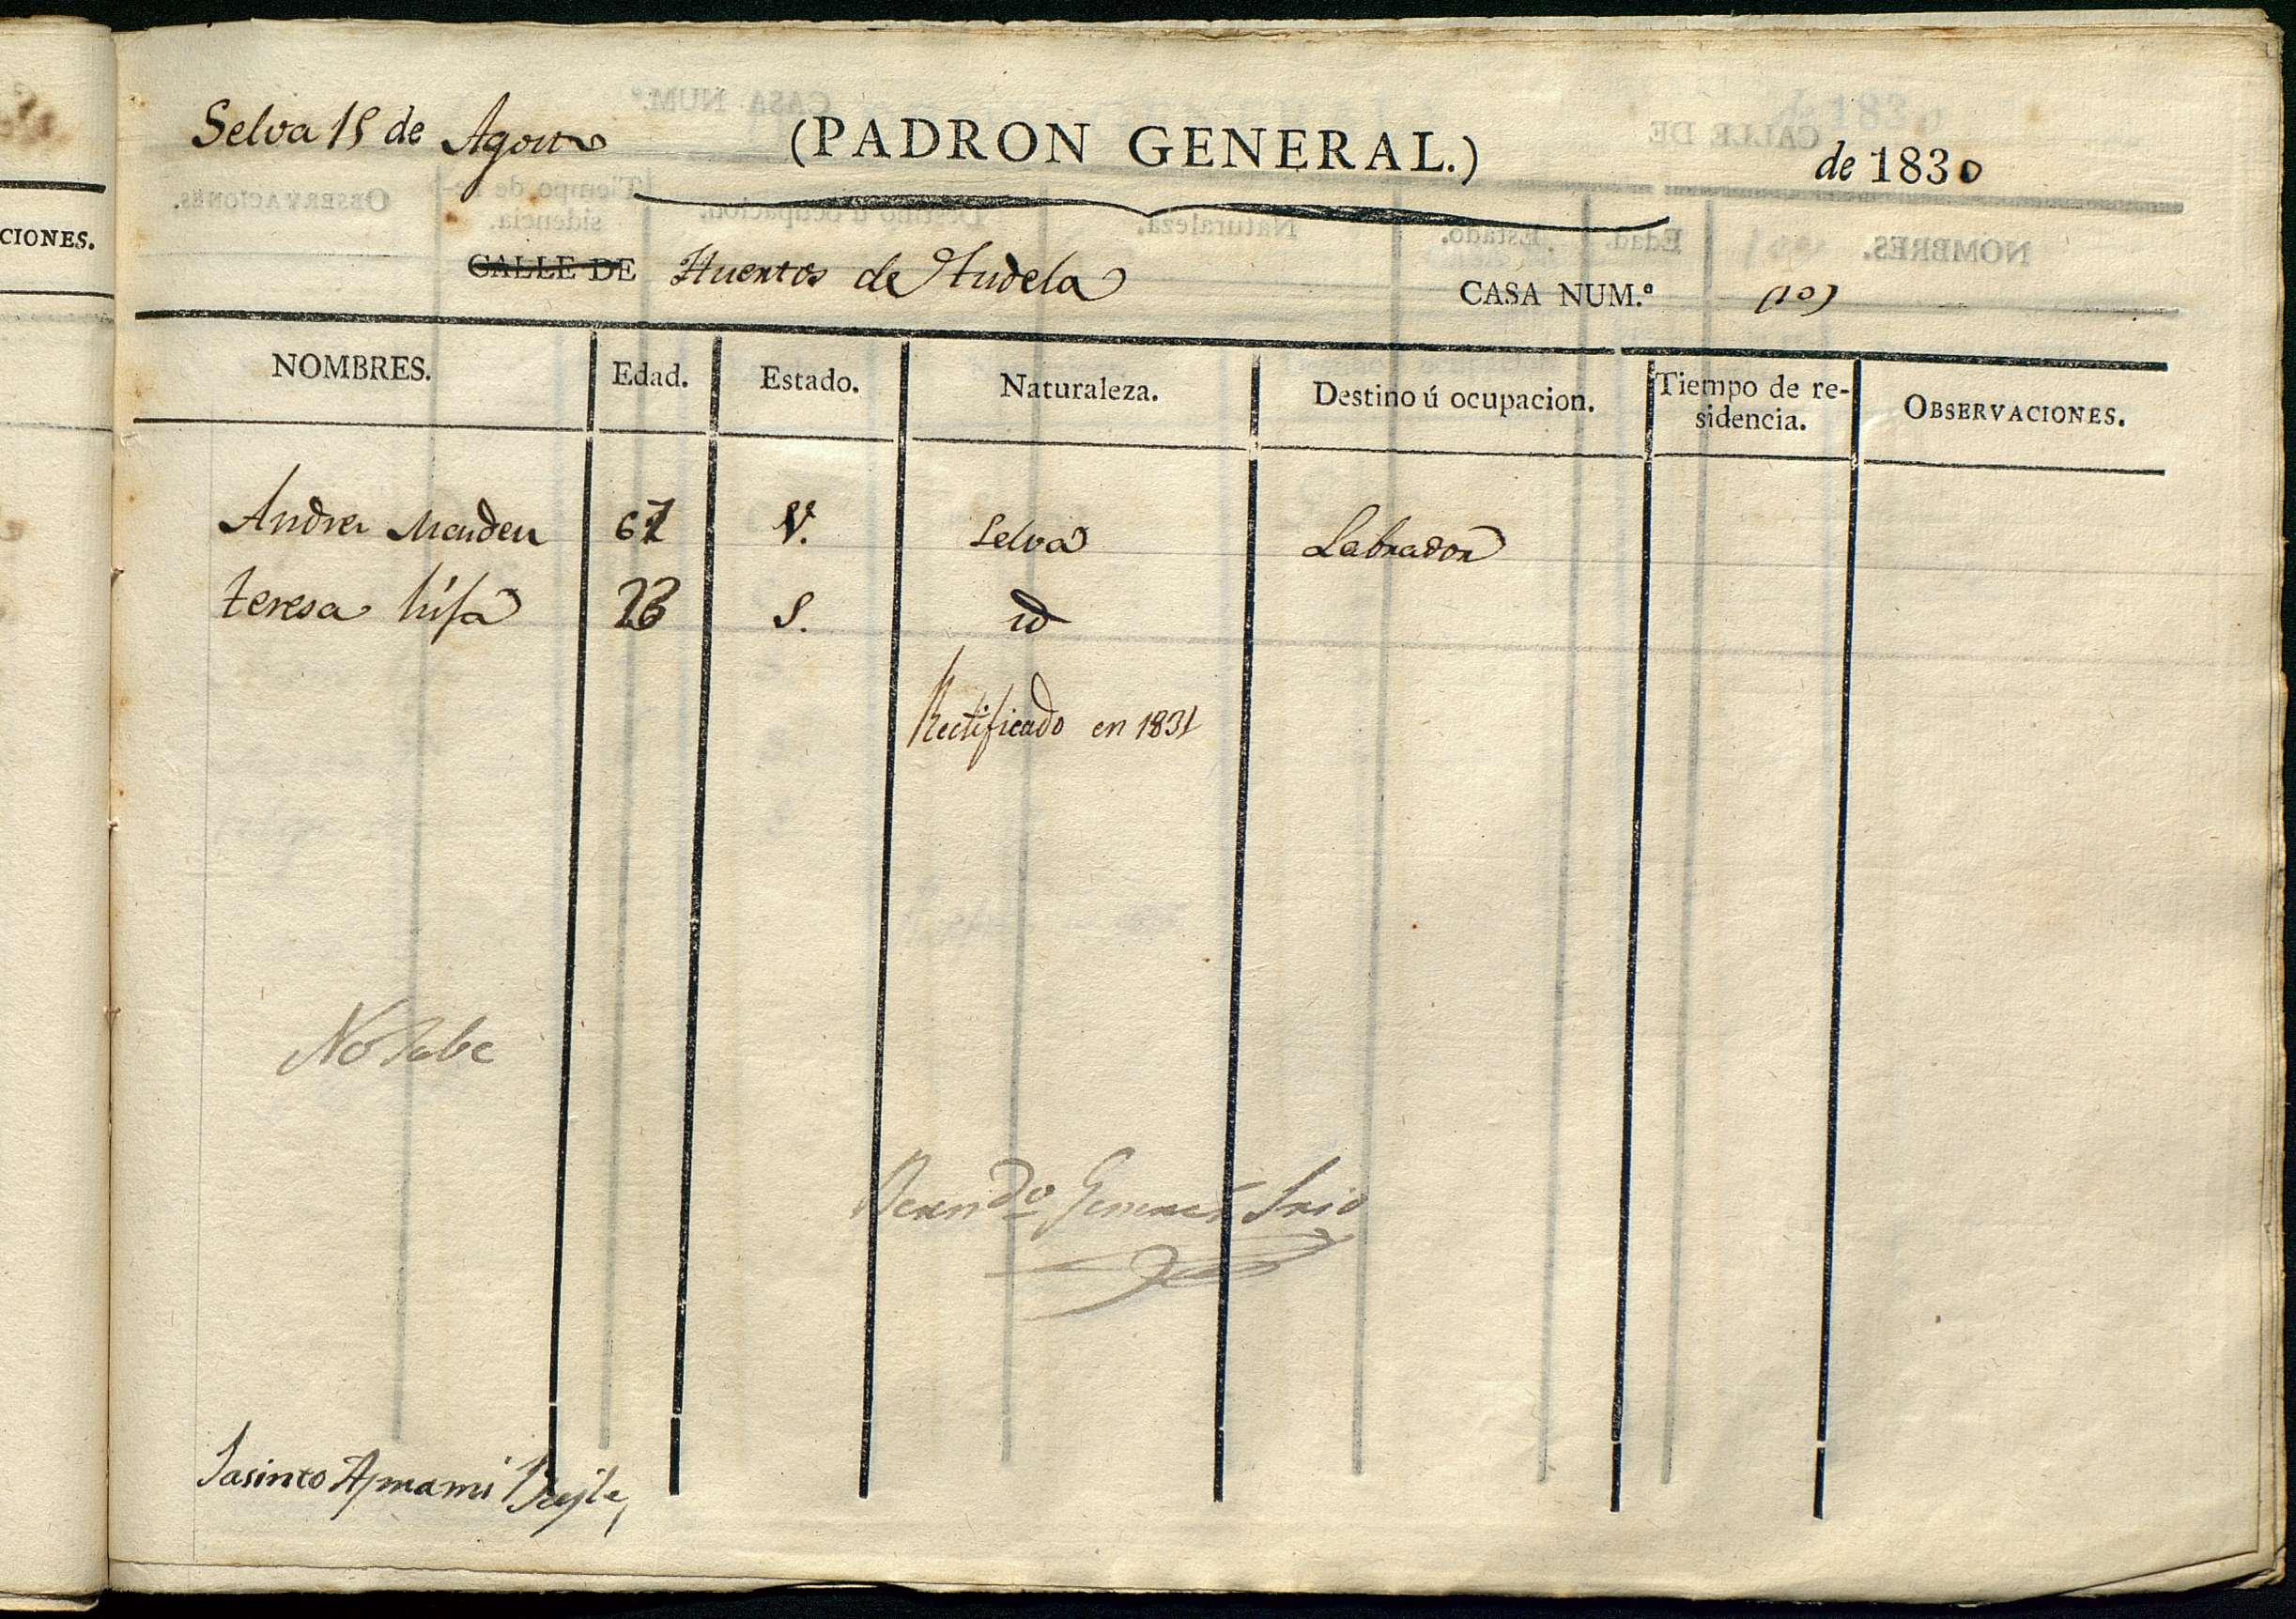 CIONES.
Selva 15 de Agosto (PADRON GENERAL.) de 1830
CALLE DE Huertos de Tudela CASA NUM.º (10)
NOMBRES. Edad. Estado. Naturaleza. Destino ú ocupacion. Tiempo de re-
sidencia. OBSERVACIONES.
Andreu 67 V. Selva Labrador
Teresa hija S. id
Rectificado en 1831
No Sabe
Jasinto Bayle